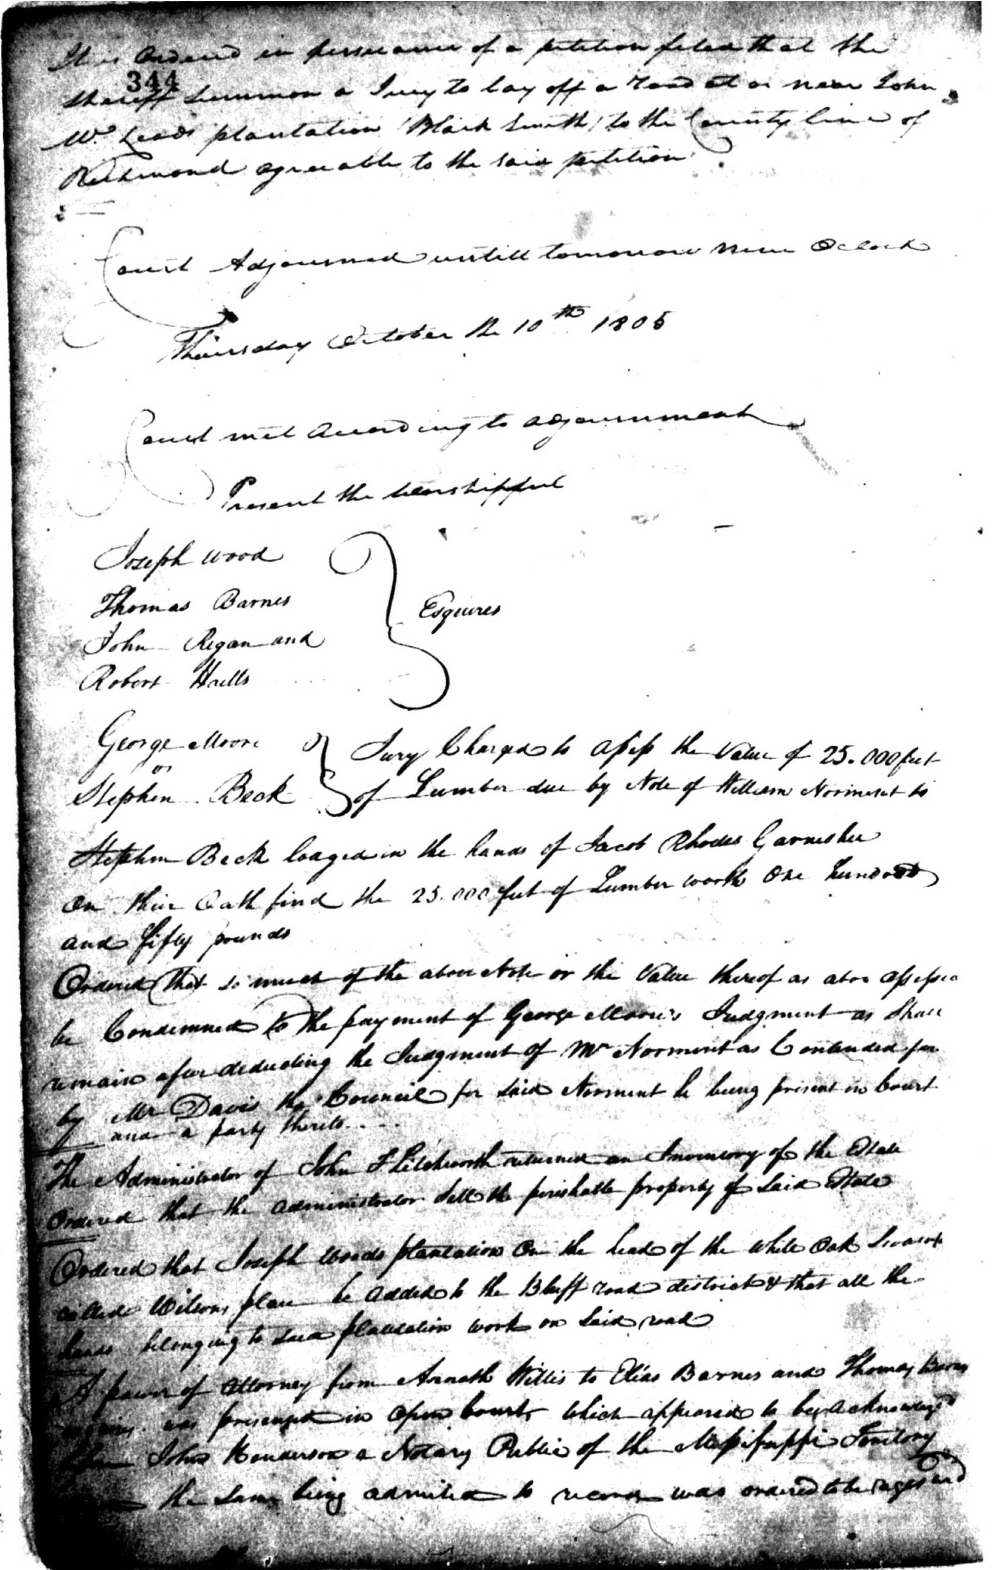 It is Ordered in pursuance of a petition filed that the
344
Sheriff Summon a Jury to lay off a road at or near John
Mc Leods plantation (Black Smith) to the County line of
Richmond agreeable to the said petition
Court Adjourned untill tomorrow nine Oclock
Thursday October the 10th 1805
Court met according to adjournment
Present the worshipful
Joseph Wood
Thomas Barnes
John Regan and
Robert Hails
Esquires
George Moore
vs
Stephen Beck
Jury Charged to assess the value of 25.000 feet
of Lumber due by Note of William Norment to
Stephen Beck lodged in the hands of Jacob Rhodes Garneshee
on thier Oath find the 25.000 feet of Lumber worth One hundred
and fifty pounds
Ordered that so much of the above Note or the value thereof as above assessed
be Condemned to the payment of George Moore's Judgment as Shall
remain after deducting the Judgment of Mr Norment as Contended for
by Mr Davis the Council for said Norment he being present in Court
and a party thereto
The Administrator of John returned an Inventory of the Estate
Ordered that the administrator sell the perishable property of Said Estate
Ordered that Joseph Woods plantation on the head of the white Oak Swamp
called Wilsons place be added to the Bluff road district & that all the
hands belonging to said plantation work on Said road
A power of attorney from Willis to Elias Barnes and Thomas Barnes
was presented in open Court which appeared to be acknowledged
John Henderson a Notary Public of the Mississippi Territory
the same being admitted to record was ordered to be registered